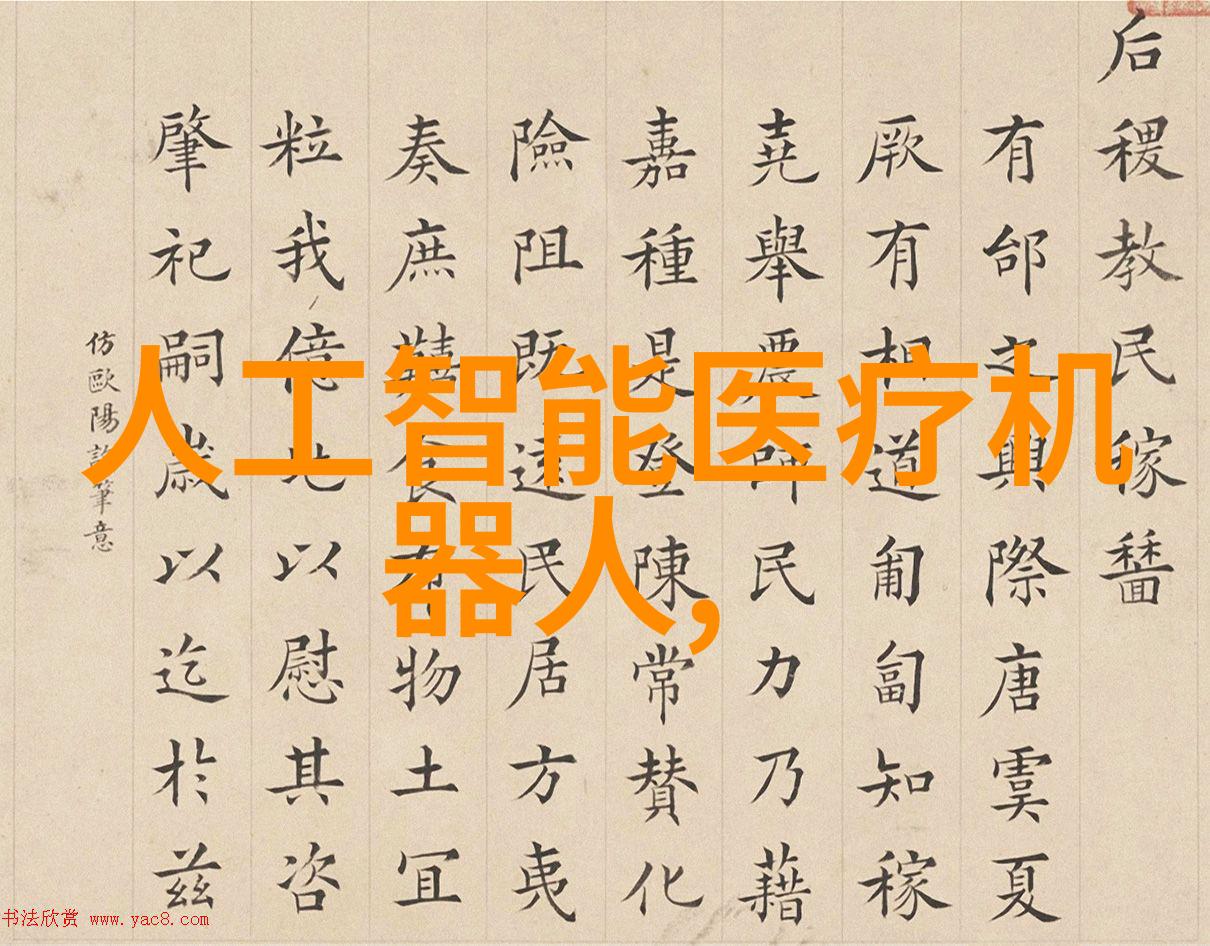 人工智能医疗机
器人,
后稷教民稼穡
有邰之興際唐虞夏
厥有相道匍匐知稼
堯舉農師民力乃藉
嘉種是登陳常賛化
險阻既遠民居方夷
奏庶食物土宜
粒我億以慰其咨
肇祀嗣歲以迄於茲
仿歐陽詢筆意
书法欣赏 www.yac8.com